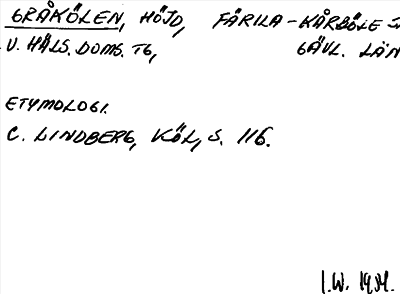 GRÅKÖLEN, HÖJD, FÄRILA-KÅRBÖLE
V. HÄLS. DOMS. TG, GÄVL. LÄN
ETYMOLOGI.
C. LINDBERG, KÖL, S. 116.
I.W. 1934.